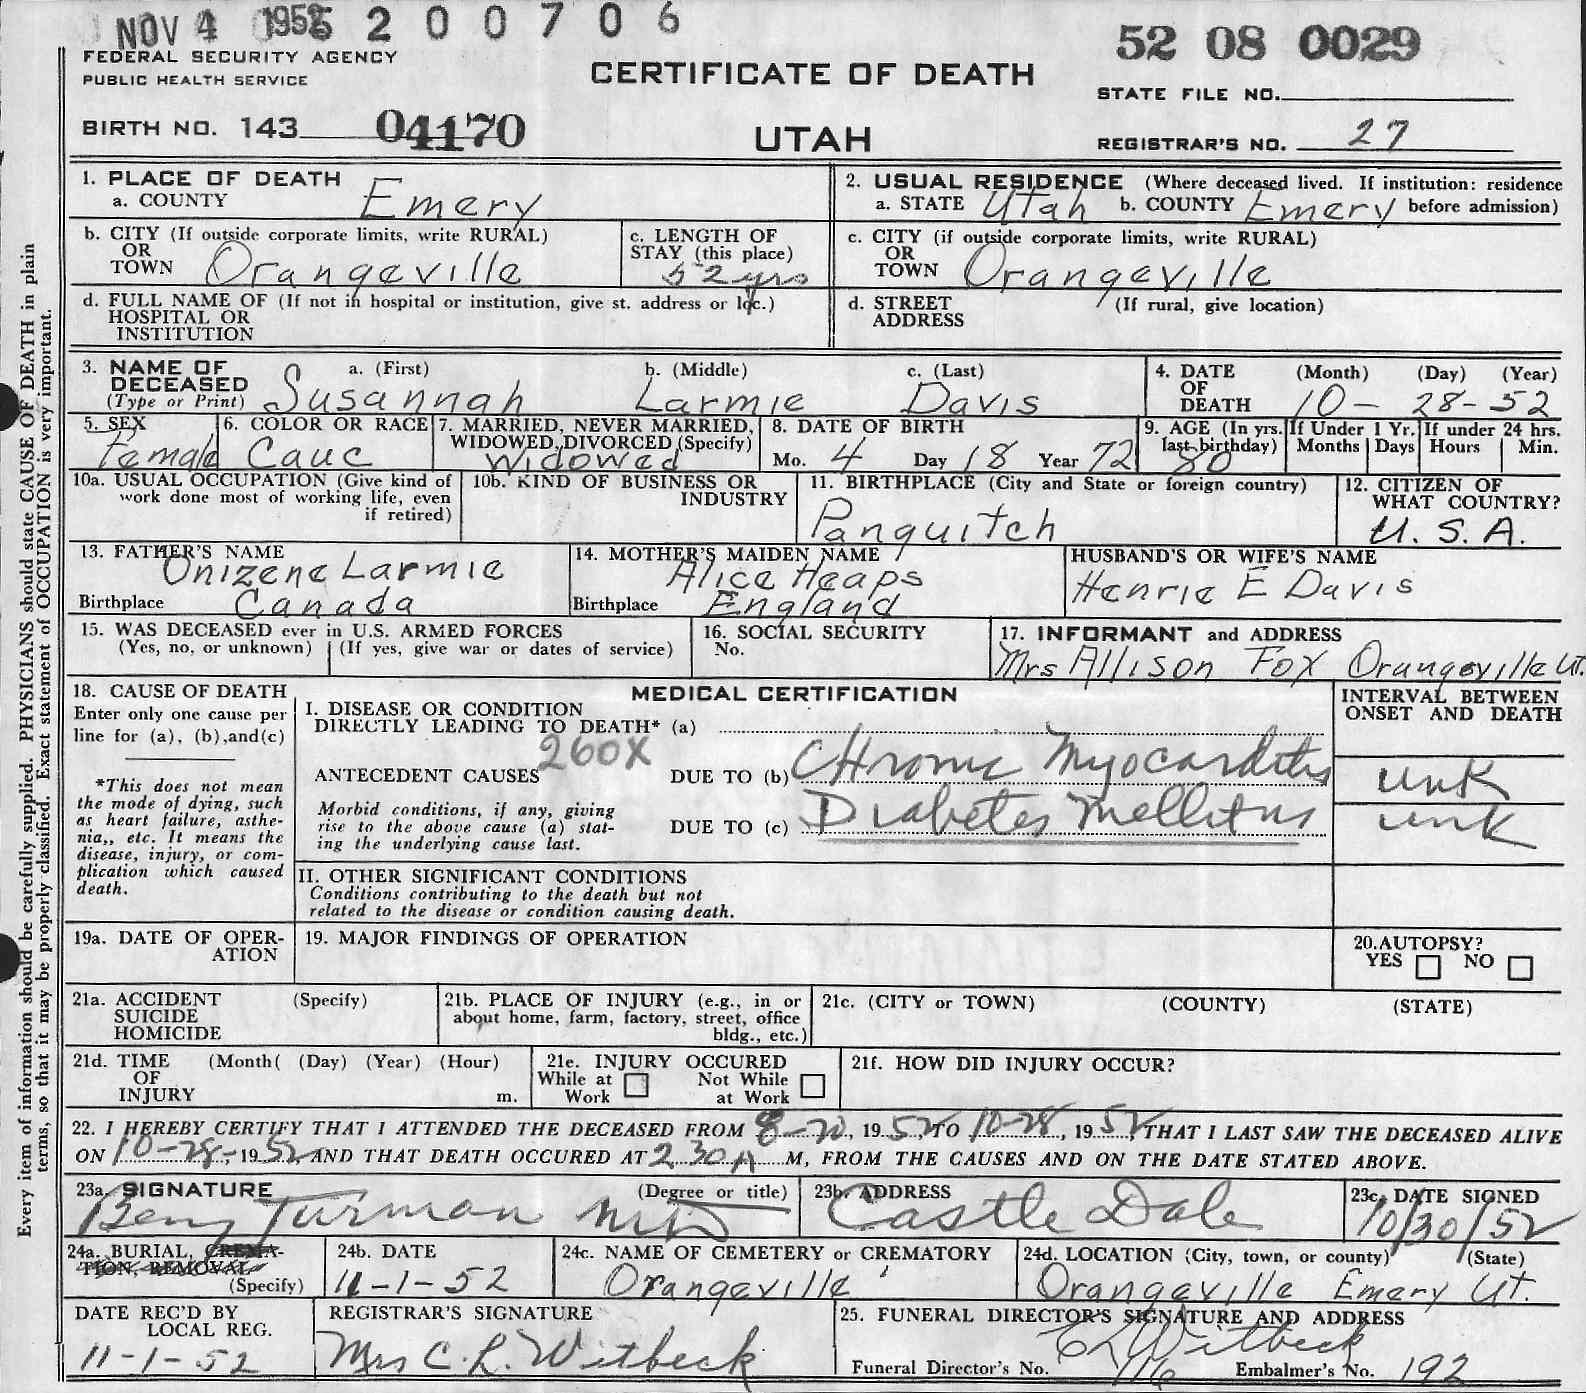 NOV 4 1952 5200706
52 08 0029
FEDERAL SECURITY AGENCY
PUBLIC HEALTH SERVICE
CERTIFICATE OF DEATH
STATE FILE NO.
BIRTH NO. 143 04170
UTAH
REGISTRAR'S NO. 27
Every item of information should be carefully supplied. PHYSICIANS should state CAUSE OF DEATH in plain
terms, so that it may be properly classified. Exact statement of OCCUPATION is very important.
1. PLACE OF DEATH
a. COUNTY Emery
2. USUAL RESIDENCE (Where deceased lived. If institution: residence
a. STATE Utah b. COUNTY Emery before admission)
b. CITY (If outside corporate limits, write RURAL)
OR
TOWN Orangeville
c. LENGTH OF
STAY (this place)
52 yrs
c. CITY (if outside corporate limits, write RURAL)
OR
TOWN Orangeville
d. FULL NAME OF (If not in hospital or institution, give st. address or loc.)
HOSPITAL OR
INSTITUTION
d. STREET (If rural, give location)
ADDRESS
3. NAME OF a. (First) b. (Middle) c. (Last)
DECEASED
(Type or Print) Susannah Larmie Davis
4. DATE (Month) (Day) (Year)
OF
DEATH 10-28-52
5. SEX
Female
6. COLOR OR RACE
Cauc
7. MARRIED, NEVER MARRIED,
WIDOWED, DIVORCED (Specify)
Widowed
8. DATE OF BIRTH
Mo. 4 Day 18 Year 72
9. AGE (In yrs.
last birthday)
80
If Under 1 Yr.
Months Days
If under 24 hrs.
Hours Min.
10a. USUAL OCCUPATION (Give kind of
work done most of working life, even
if retired)
10b. KIND OF BUSINESS OR
INDUSTRY
11. BIRTHPLACE (City and State or foreign country)
Panquitch
12. CITIZEN OF
WHAT COUNTRY?
U. S. A.
13. FATHER'S NAME
Onizene Larmie
Birthplace Canada
14. MOTHER'S MAIDEN NAME
Alice Heaps
Birthplace England
HUSBAND'S OR WIFE'S NAME
Henrie E Davis
15. WAS DECEASED ever in U.S. ARMED FORCES
(Yes, no, or unknown) (If yes, give war or dates of service)
16. SOCIAL SECURITY
No.
17. INFORMANT and ADDRESS
Mrs Allison Fox Orangeville Ut.
18. CAUSE OF DEATH
Enter only one cause per
line for (a), (b),and(c)
*This does not mean
the mode of dying, such
as heart failure, asthe-
nia,, etc. It means the
disease, injury, or com-
plication which caused
death.
MEDICAL CERTIFICATION
I. DISEASE OR CONDITION
DIRECTLY LEADING TO DEATH* (a)
260X
ANTECEDENT CAUSES DUE TO (b) Chronic Myocarditis
Morbid conditions, if any, giving
rise to the above cause (a) stat-
ing the underlying cause last.
DUE TO (c) Diabetes Mellitus
INTERVAL BETWEEN
ONSET AND DEATH
unk
unk
II. OTHER SIGNIFICANT CONDITIONS
Conditions contributing to the death but not
related to the disease or condition causing death.
19a. DATE OF OPER-
ATION
19. MAJOR FINDINGS OF OPERATION
20.AUTOPSY?
YES NO
21a. ACCIDENT (Specify)
SUICIDE
HOMICIDE
21b. PLACE OF INJURY (e.g., in or
about home, farm, factory, street, office
bldg., etc.)
21c. (CITY or TOWN) (COUNTY) (STATE)
21d. TIME (Month( (Day) (Year) (Hour)
OF
INJURY m.
21e. INJURY OCCURED
While at Not While
Work at Work
21f. HOW DID INJURY OCCUR?
22. I HEREBY CERTIFY THAT I ATTENDED THE DECEASED FROM 8-20, 1952, TO 10-28, 1952, THAT I LAST SAW THE DECEASED ALIVE
ON 10-28-, 1952 AND THAT DEATH OCCURED AT 2 30 A M, FROM THE CAUSES AND ON THE DATE STATED ABOVE.
23a. SIGNATURE (Degree or title)
Benj Turman MD
23b. ADDRESS
Castle Dale
23c. DATE SIGNED
10/30/52
24a. BURIAL, CREMA-
TION, REMOVAL
(Specify)
24b. DATE
11-1-52
24c. NAME OF CEMETERY or CREMATORY
Orangeville
24d. LOCATION (City, town, or county) (State)
Orangeville Emery Ut.
DATE REC'D BY
LOCAL REG.
11-1-52
REGISTRAR'S SIGNATURE
Mrs C. L. Witbeck
25. FUNERAL DIRECTOR'S SIGNATURE AND ADDRESS
CL Witbeck
Funeral Director's No. 116 Embalmer's No. 192